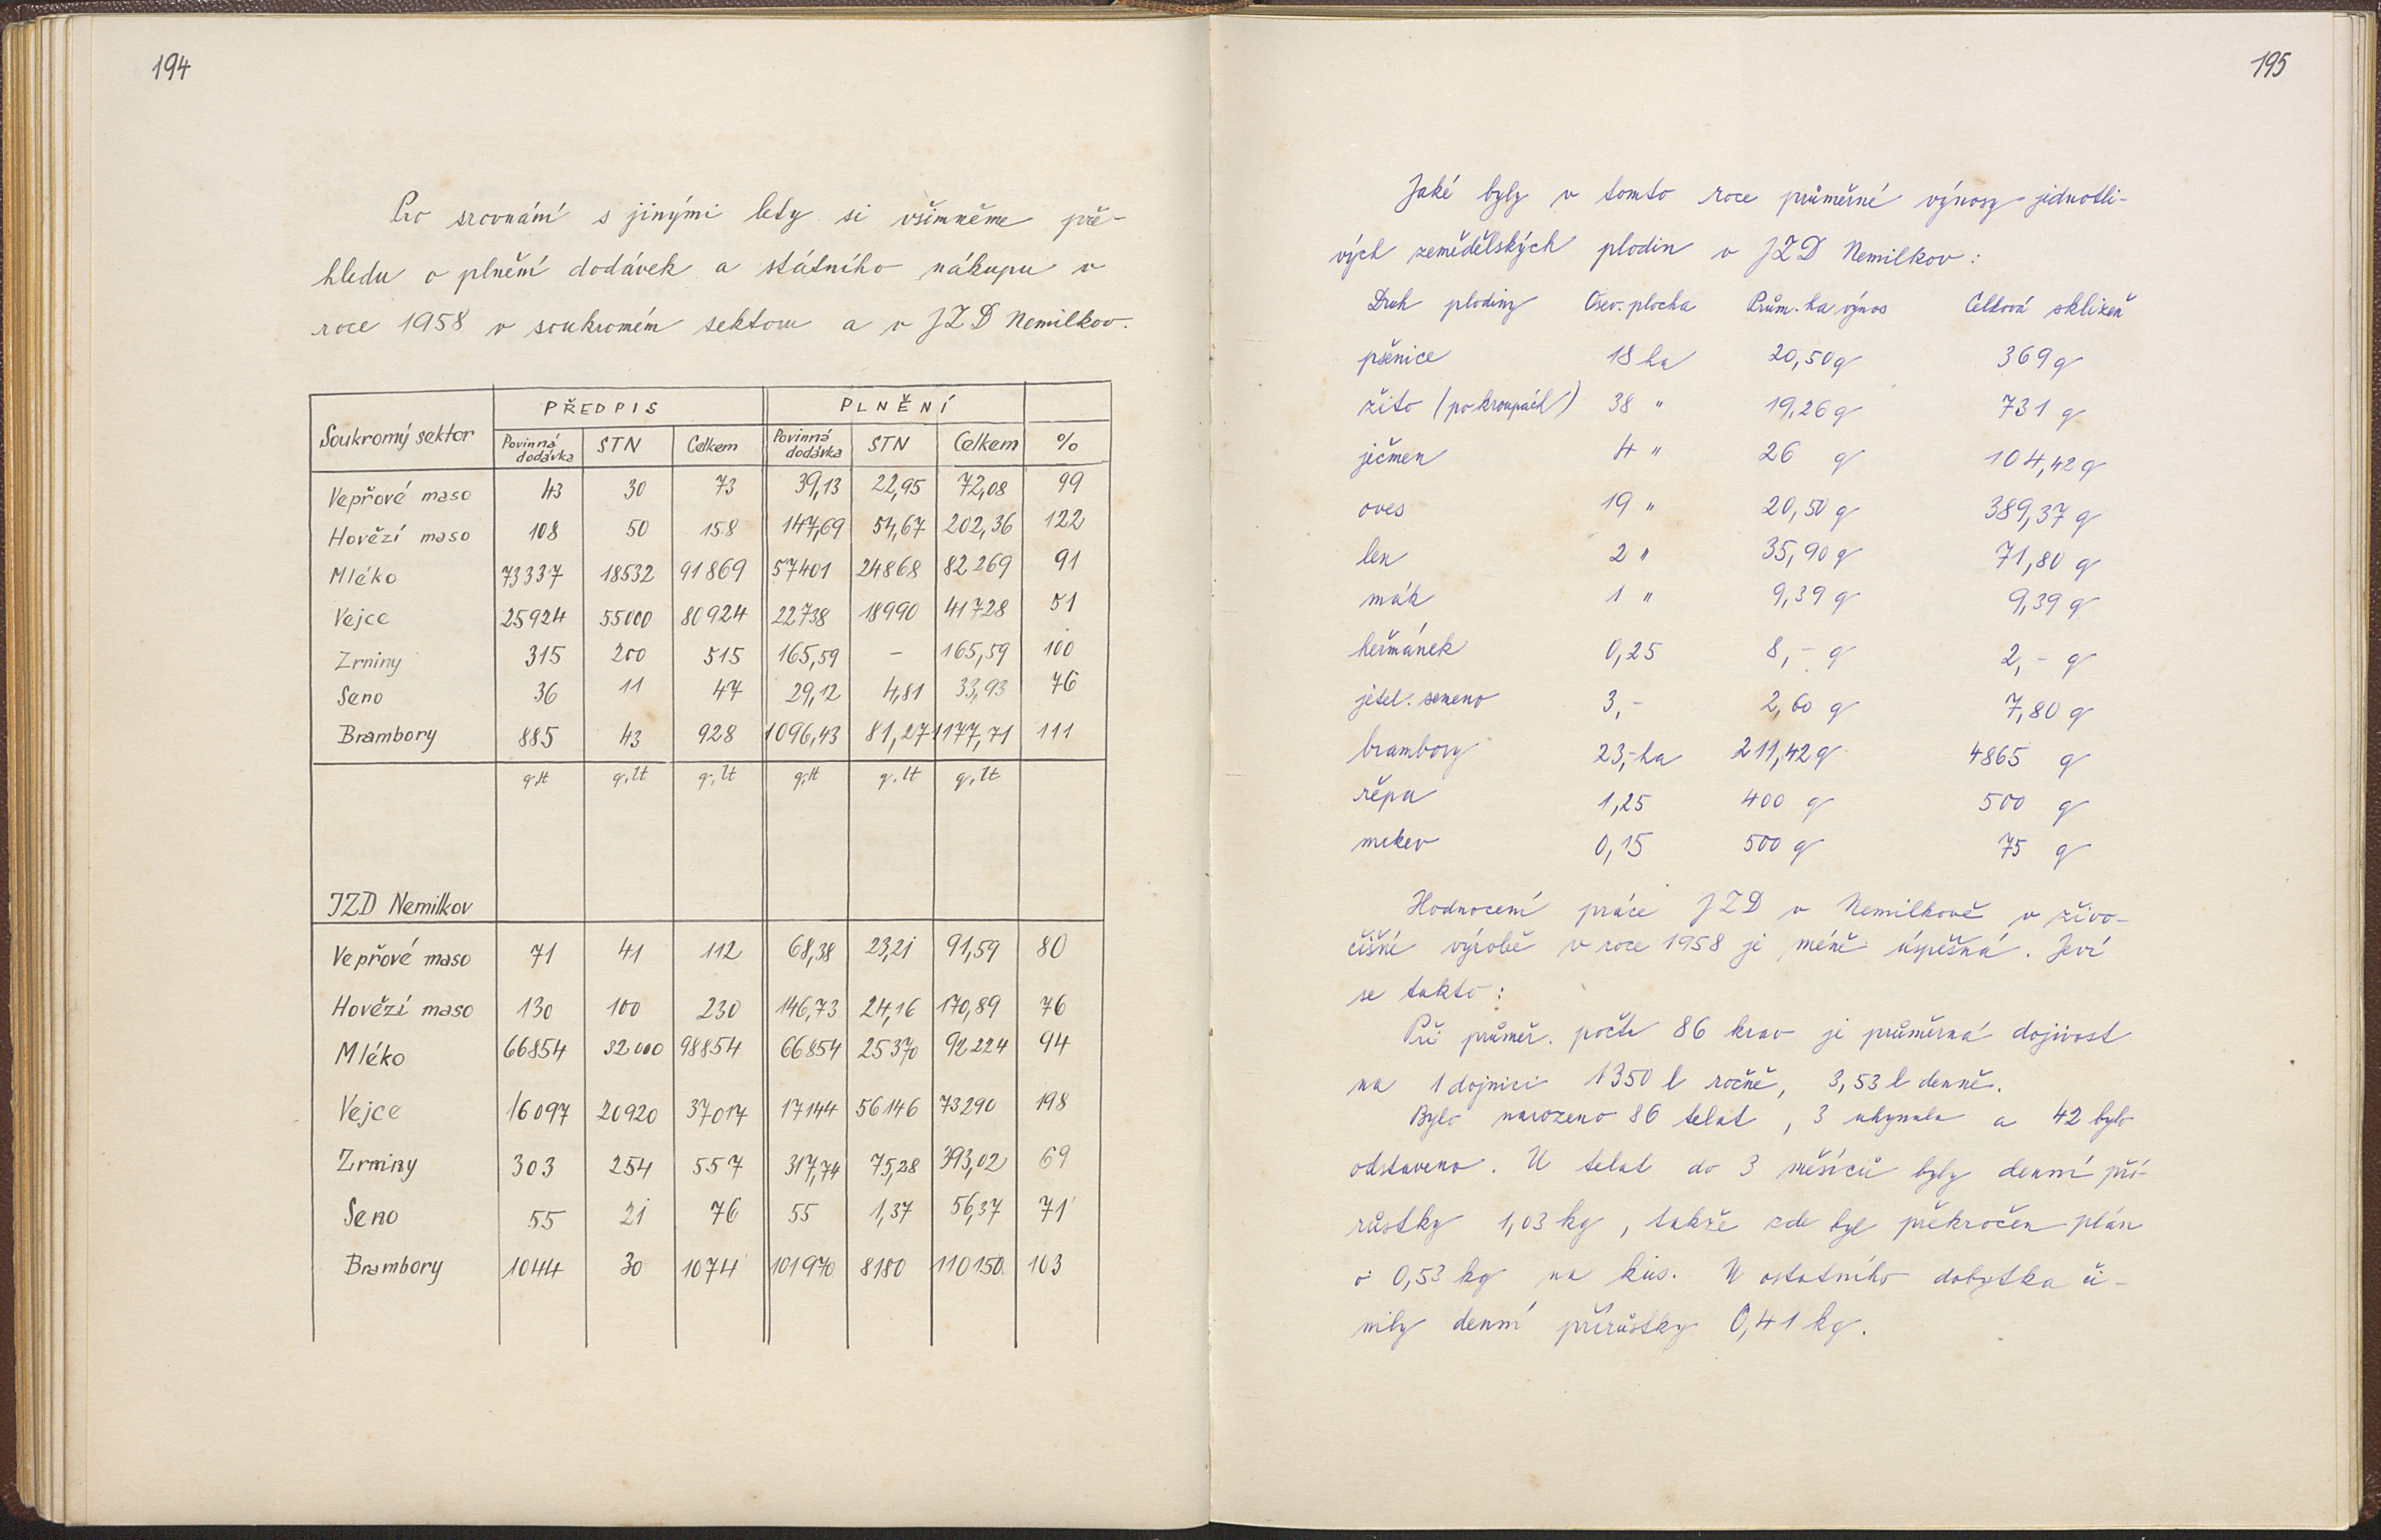 194
Pro srovnání s jinými lety si všimněme pře-
hledu o plnění dodávek a státního nákupu v
roce 1958 v soukromém sektoru a v JZD Nemilkov.
PŘEDPIS PLNĚNÍ
Soukromý sektor Povinná dodávka STN Celkem Povinná dodávka STN Celkem %
Vepřové maso 43 30 73 39,13 22,95 72,08 99
Hovězí maso 108 50 158 147,69 54,67 202,36 122
Mléko 73337 18532 91869 57401 24868 82269 91
Vejce 25924 55000 80924 22738 18990 41728 51
Zrniny 315 200 515 165,59 – 165,59 100
Seno 36 11 47 29,12 4,81 33,93 76
Brambory 885 43 928 1096,43 81,27 1177,71 111
q, lt q, lt q, lt q, lt q, lt q, lt
JZD Nemilkov
Vepřové maso 71 41 112 68,38 23,21 91,59 80
Hovězí maso 130 100 230 146,73 24,16 170,89 76
Mléko 66854 32000 98854 66854 25370 92224 94
Vejce 16097 20920 37017 17144 56146 73290 198
Zrniny 303 254 557 317,74 75,28 393,02 69
Seno 55 21 76 55 1,37 56,37 71
Brambory 1044 30 1074 101970 8180 110150 103
195
Jaké byly v tomto roce průměrné výnosy jednotli-
vých zemědělských plodin v JZD Nemilkov:
Druh plodiny Osev. plocha Prům. ha výnos Celková sklizeň
pšenice 18 ha 20,50 q 369 q
žito (po kroupách) 38 " 19,26 q 731 q
ječmen 4 " 26 q 104,42 q
oves 19 " 20,50 q 389,37 q
len 2 " 35,90 q 71,80 q
mák 1 " 9,39 q 9,39 q
heřmánek 0,25 8,- q 2,- q
jetel. semeno 3,- 2,60 q 7,80 q
brambory 23,- ha 211,42 q 4865 q
řepa 1,25 400 q 500 q
mrkev 0,15 500 q 75 q
Hodnocení práce JZD v Nemilkově v živo-
čišné výrobě v roce 1958 je méně úspěšná. Jeví
se takto:
Při průměr. počtu 86 krav je průměrná dojivost
na 1 dojnici 1350 l ročně, 3,53 l denně.
Bylo narozeno 86 telat, 3 uhynula a 42 bylo
odstaveno. U telat do 3 měsíců byly denní pří-
růstky 1,03 kg, takže zde byl překročen plán
o 0,53 kg na kus. U ostatního dobytka či-
nily denní přírůstky 0,41 kg.